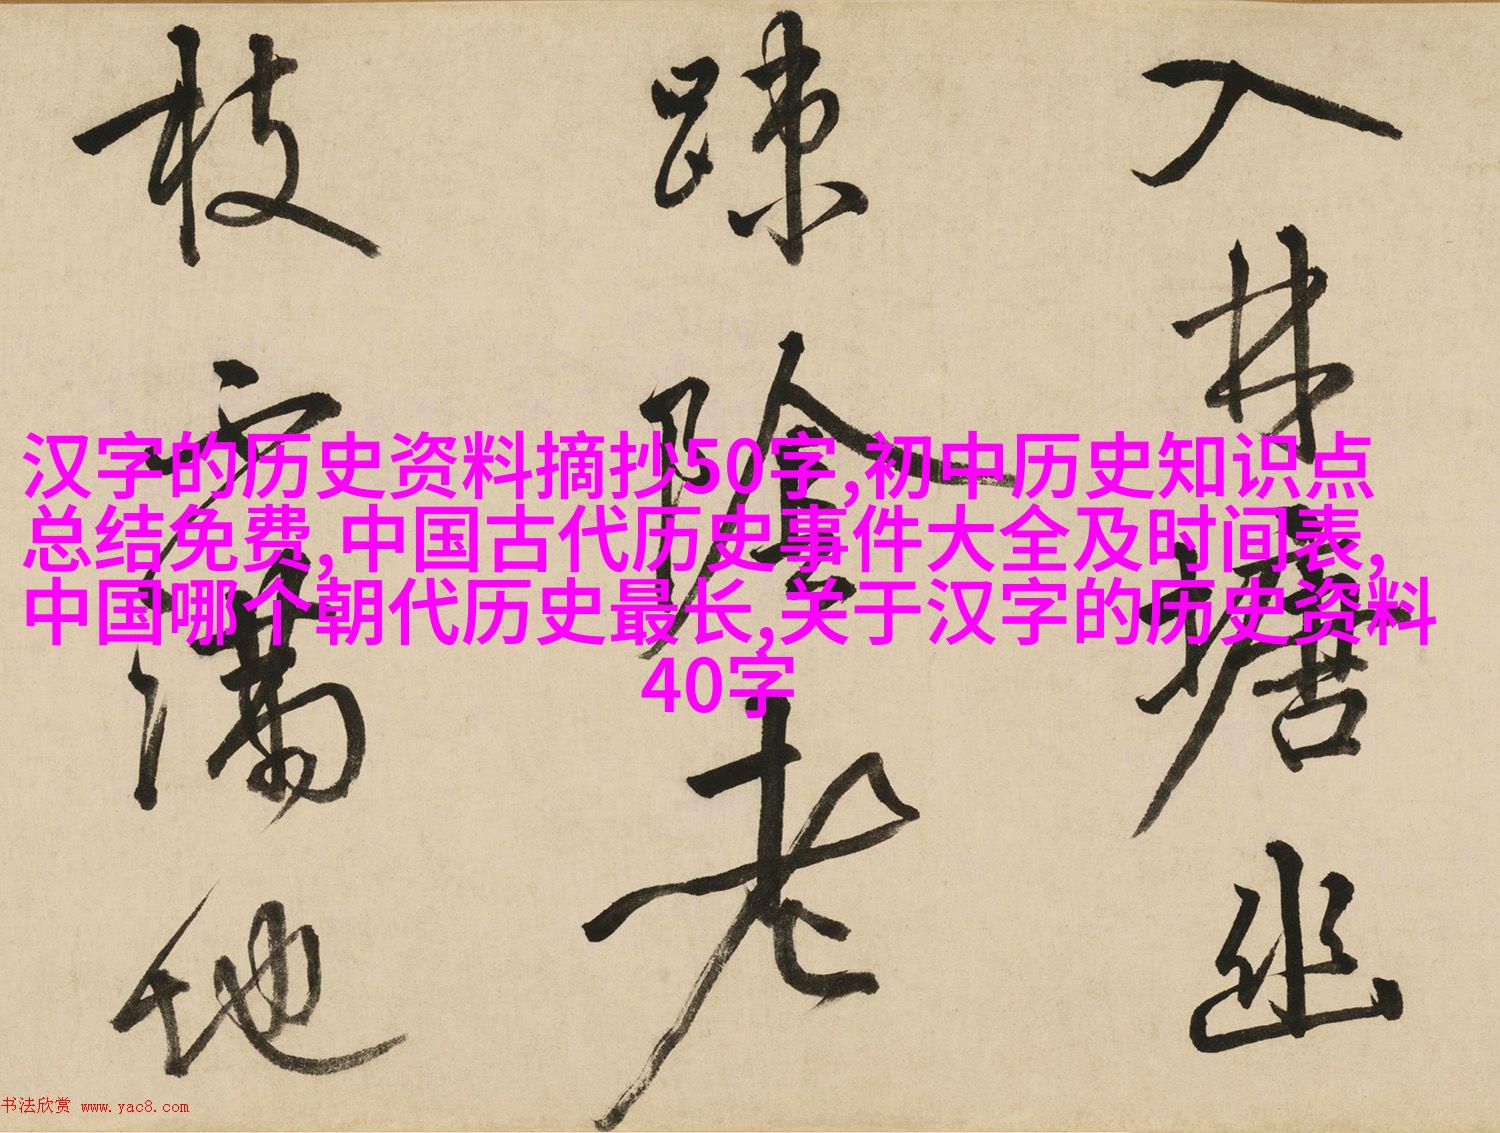 汉字的历史资料摘抄50字,初中历史知识点
总结免费,中国古代历史事件大全及时间表,
中国哪个朝代历史最长,关于汉字的历史资料
40字
入林塘幽
疎陰老
枝滿地
书法欣赏 www.yac8.com